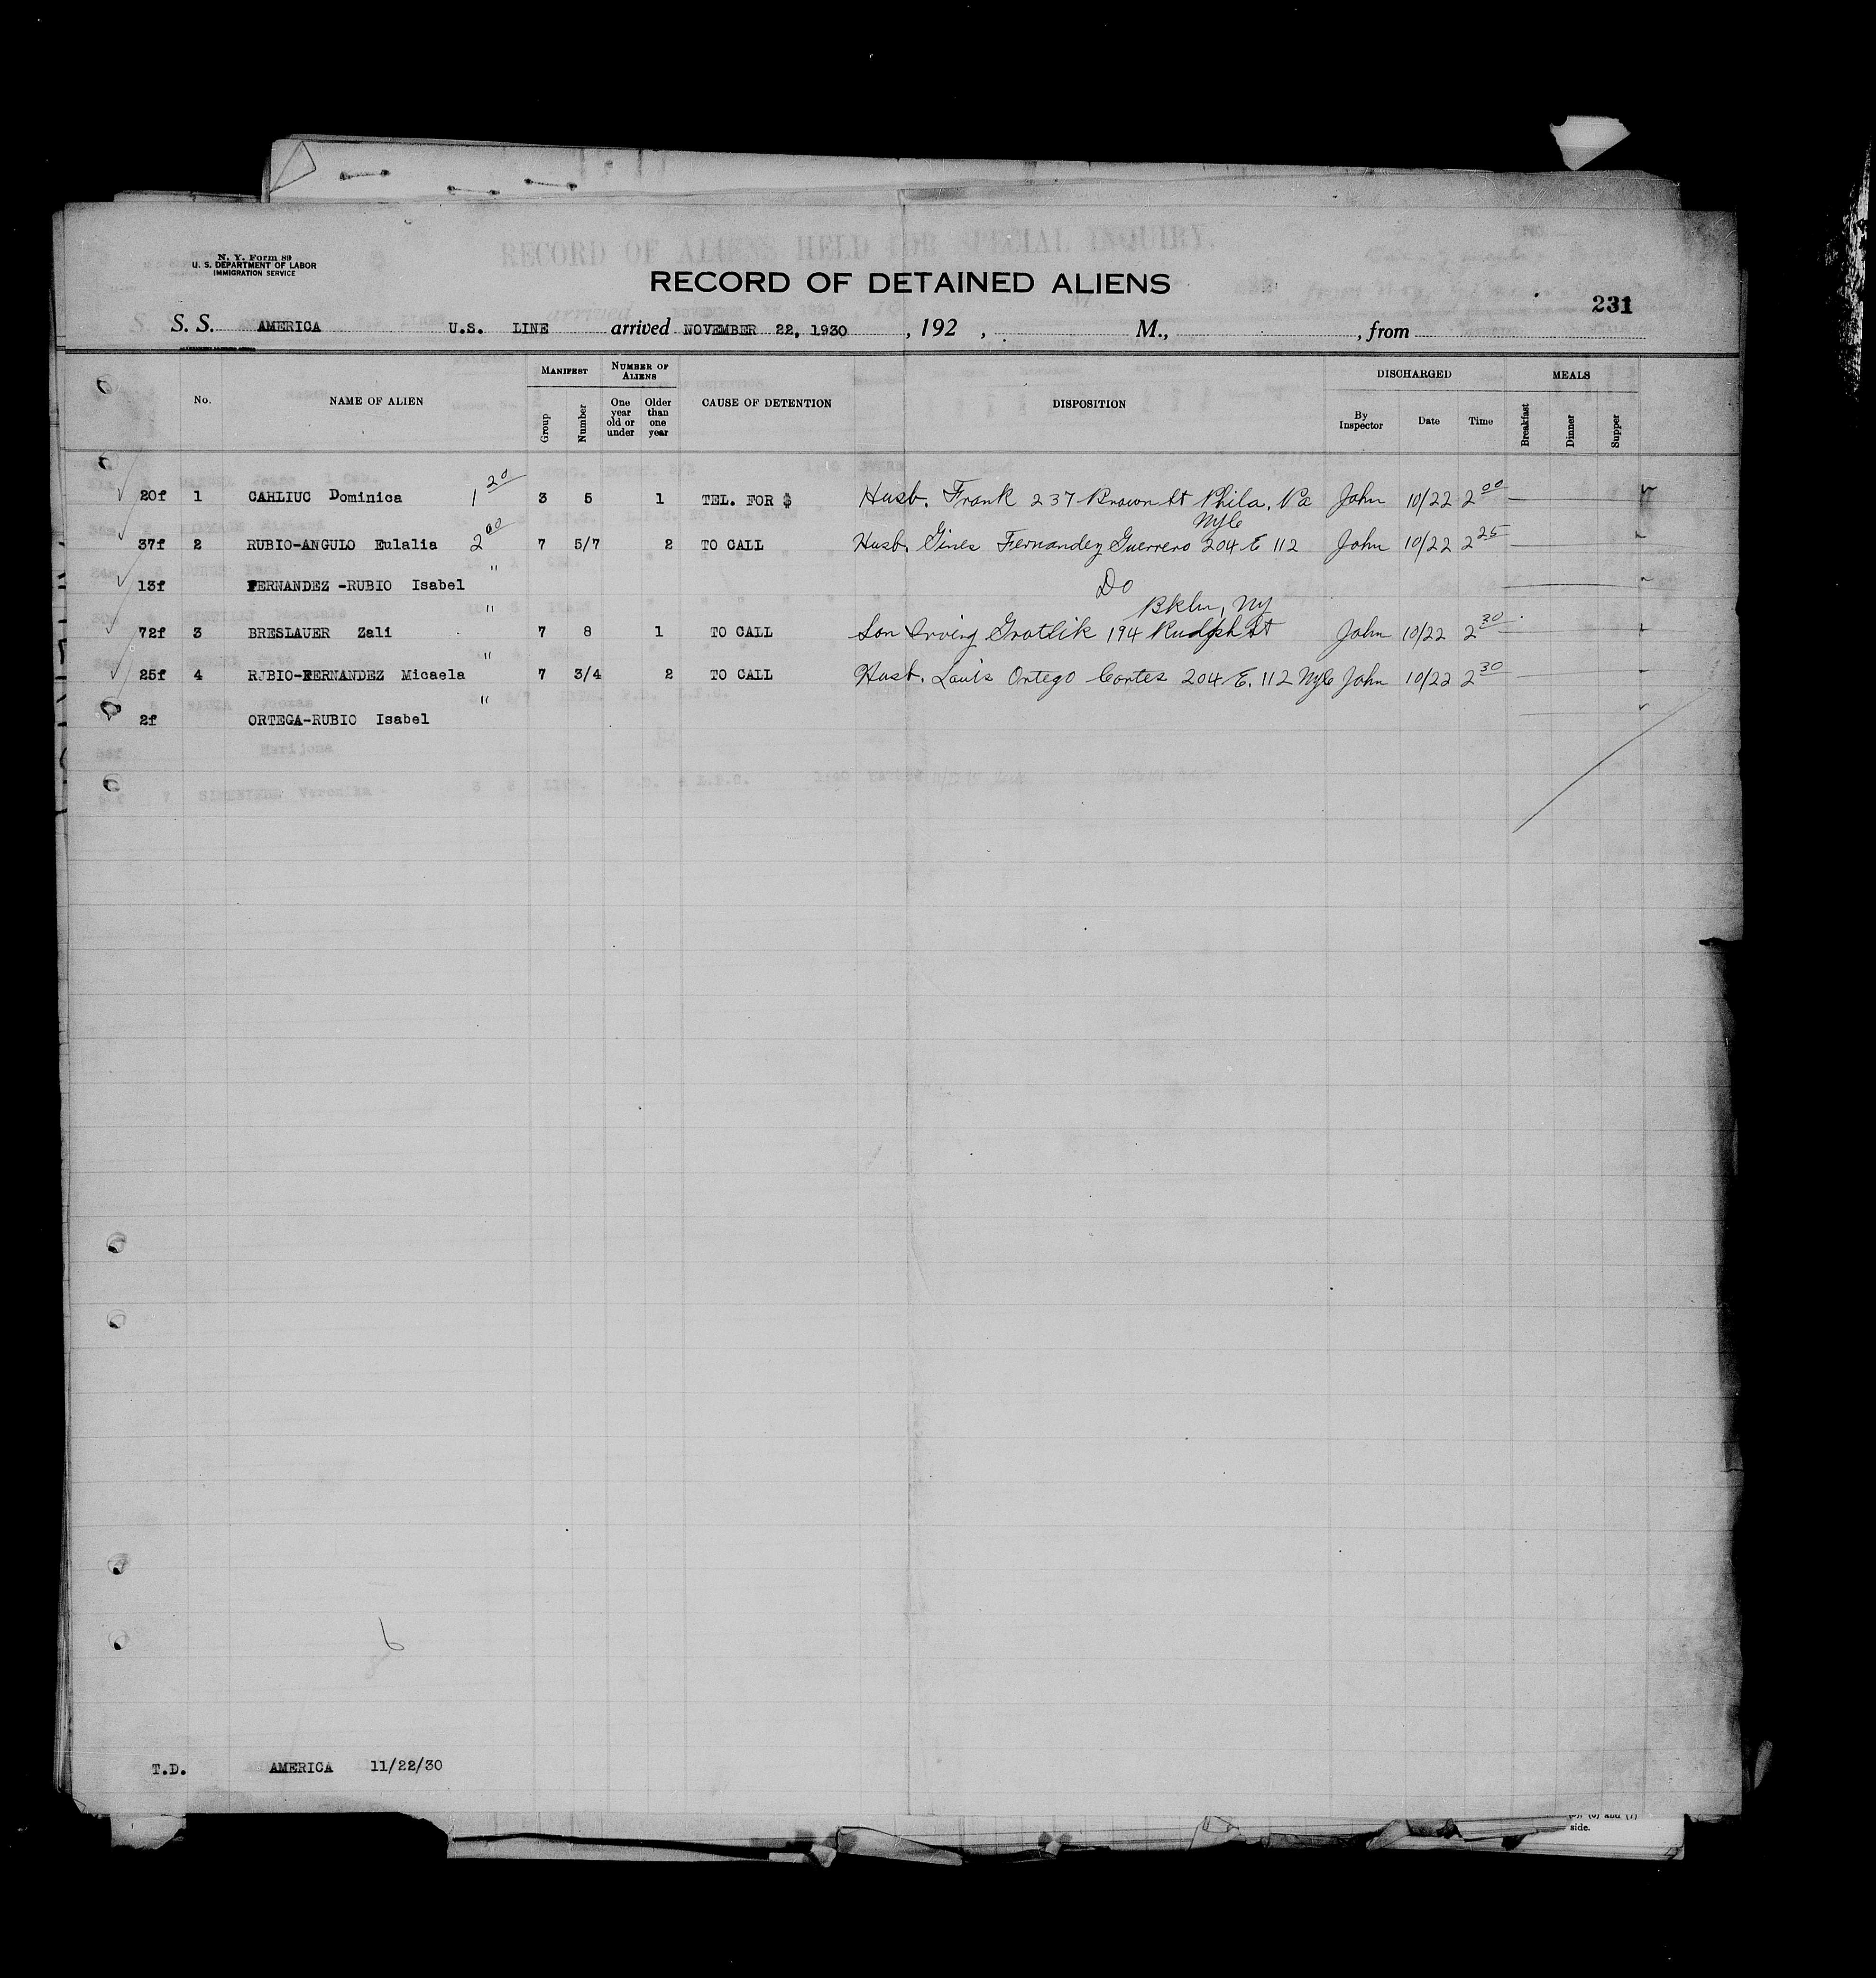 N. Y. Form 89
U. S. DEPARTMENT OF LABOR
IMMIGRATION SERVICE
RECORD OF ALIENS HELD FOR SPECIAL INQUIRY.
RECORD OF DETAINED ALIENS
231
S. S. AMERICA U.S. LINE arrived NOVEMBER 22, 1930, 192 , M., , from
No. NAME OF ALIEN MANIFEST Group Number NUMBER OF ALIENS One year old or under Older than one year CAUSE OF DETENTION DISPOSITION DISCHARGED By Inspector Date Time MEALS Breakfast Dinner Supper
20f 1 CAHLIUC Dominica 1 20 3 5 1 TEL. FOR $ Husb. Frank 237 Brown St Phila. Pa John 10/22 2 00
NYC
37f 2 RUBIO-ANGULO Eulalia 2 00 7 5/7 2 TO CALL Husb. Gines Fernandez Guerrero 204 E 112 John 10/22 2 25
13f FERNANDEZ -RUBIO Isabel " Do
Bkln, NY
72f 3 BRESLAUER Zali " 7 8 1 TO CALL Son Irving Gratlik 194 St John 10/22 2 30
25f 4 RJBIO-FERNANDEZ Micaela " 7 3/4 2 TO CALL Husb. Louis Ortego Cortes 204 E. 112 NYC John 10/22 2 30
2f ORTEGA-RUBIO Isabel "
Marijona
7 Veronika
6
T.D. AMERICA 11/22/30
(5), (6) and (7)
side.